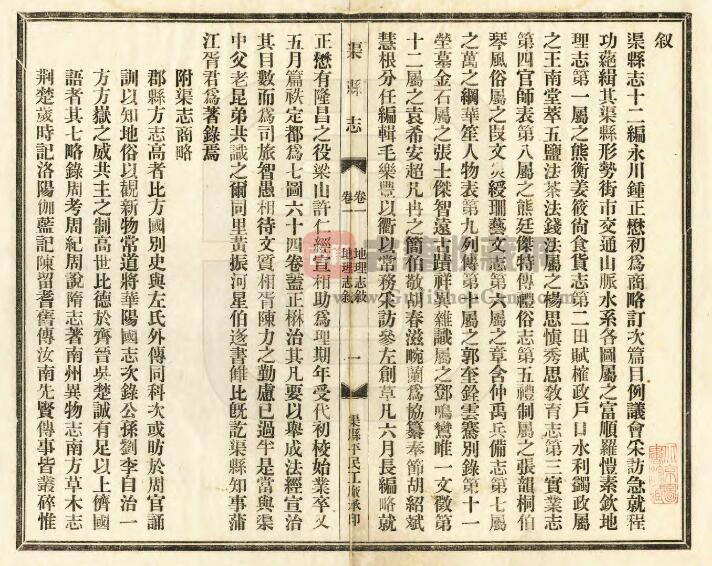 叙
渠縣志十二編永川鍾正懋初爲商略訂次篇目例議會采訪急就程
功蒞緝其渠縣形勢街市交通山脈水系各圖屬之富順羅愷素欽地
理志第一屬之熊衡姜筱尙食貨志第二田賦榷政戶口水利蠲政屬
之王南堂萃五鹽法茶法錢法屬之楊思愼秀思敎育志第三實業志
第四官師表第八屬之熊廷傑特傳禮俗志第五禮制屬之張韻桐伯
琴風俗屬之段文燮綬珊藝文志第六屬之章含仲禹兵備志第七屬
之萬之綱華笙人物表第九列傳第十屬之郭奎銓雲騫別錄第十一
塋墓金石屬之張士傑智遠古蹟祥異雜識屬之鄧鳴鸞唯一文徵第
十二屬之袁希安超凡冉之簡伯敬胡春滋畹蘭爲協纂奉節胡紹斌
慧根分任編輯毛樂豐以衢以常務采訪參左創草凡六月長編略就
渠縣志
卷一 地理志敘
卷一 地理志敘
一
渠縣平民工廠承印
正懋有隆昌之役梁山許仁經宣相助爲理期年受代初校始業卒乂
五月篇袟定都爲七圖六十四卷蓋正楙治其凡要以舉成法經宣治
其目數而爲司旅智愚相待文質相胥陳力之勤慮已過半是當與渠
中父老昆弟共識之爾同里黃振河星伯遂書雠比旣訖渠縣知事蒲
江胥君爲著錄焉
附渠志商略
郡縣方志高者比方國別史與左氏外傳同科次或昉於周官誦
訓以知地俗以觀新物常道將華陽國志次錄公孫劉李自治一
方方嶽之威共主之制高世比德於齊晉吳楚誠有足以上儕國
語者其七略錄周考周紀周說隋志著南州異物志南方草木志
荆楚歲時記洛陽伽藍記陳留耆舊傳汝南先賢傳事皆叢碎惟